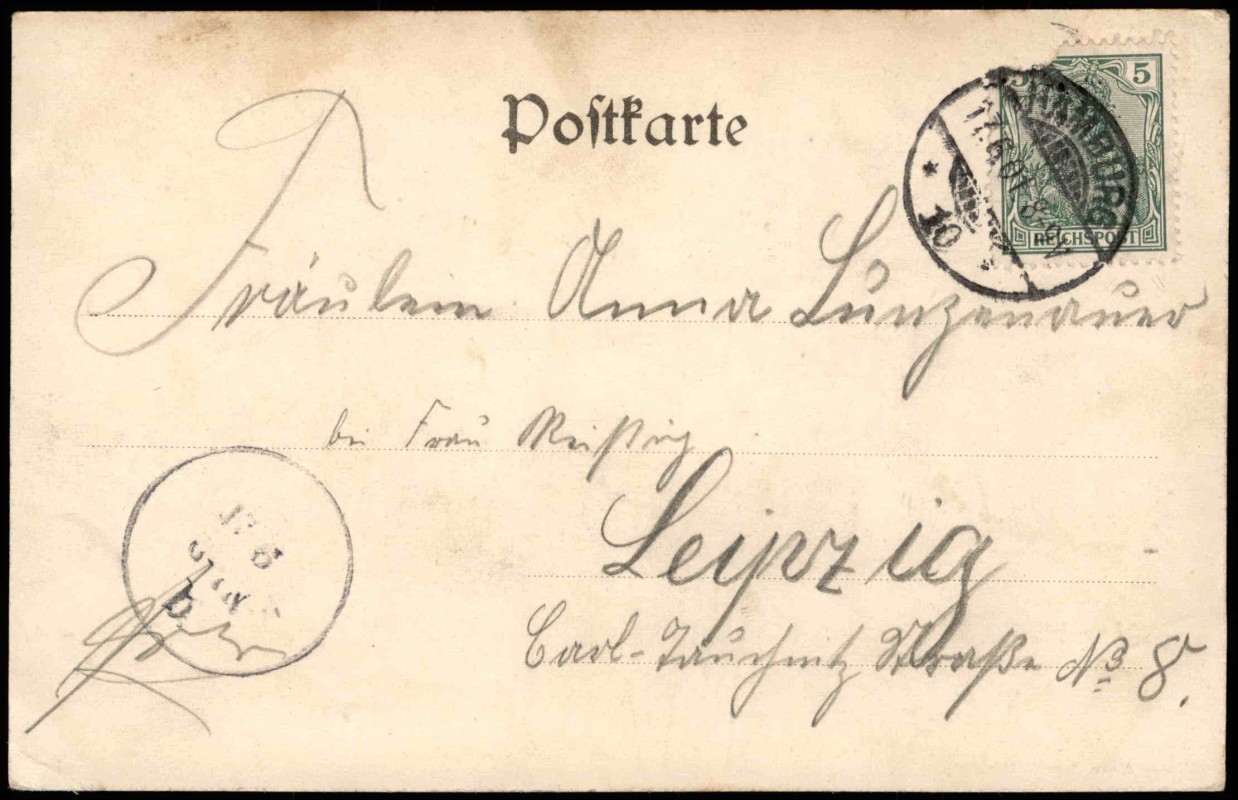 Postkarte
5
REICHSPOST
HAMBURG
17.6.01. 8-9V
* 10 *
Fräulein Anna Lunzenauer
bei Frau Reißig
Leipzig
Carl-Tauchnitz Straße No 8.
17 6